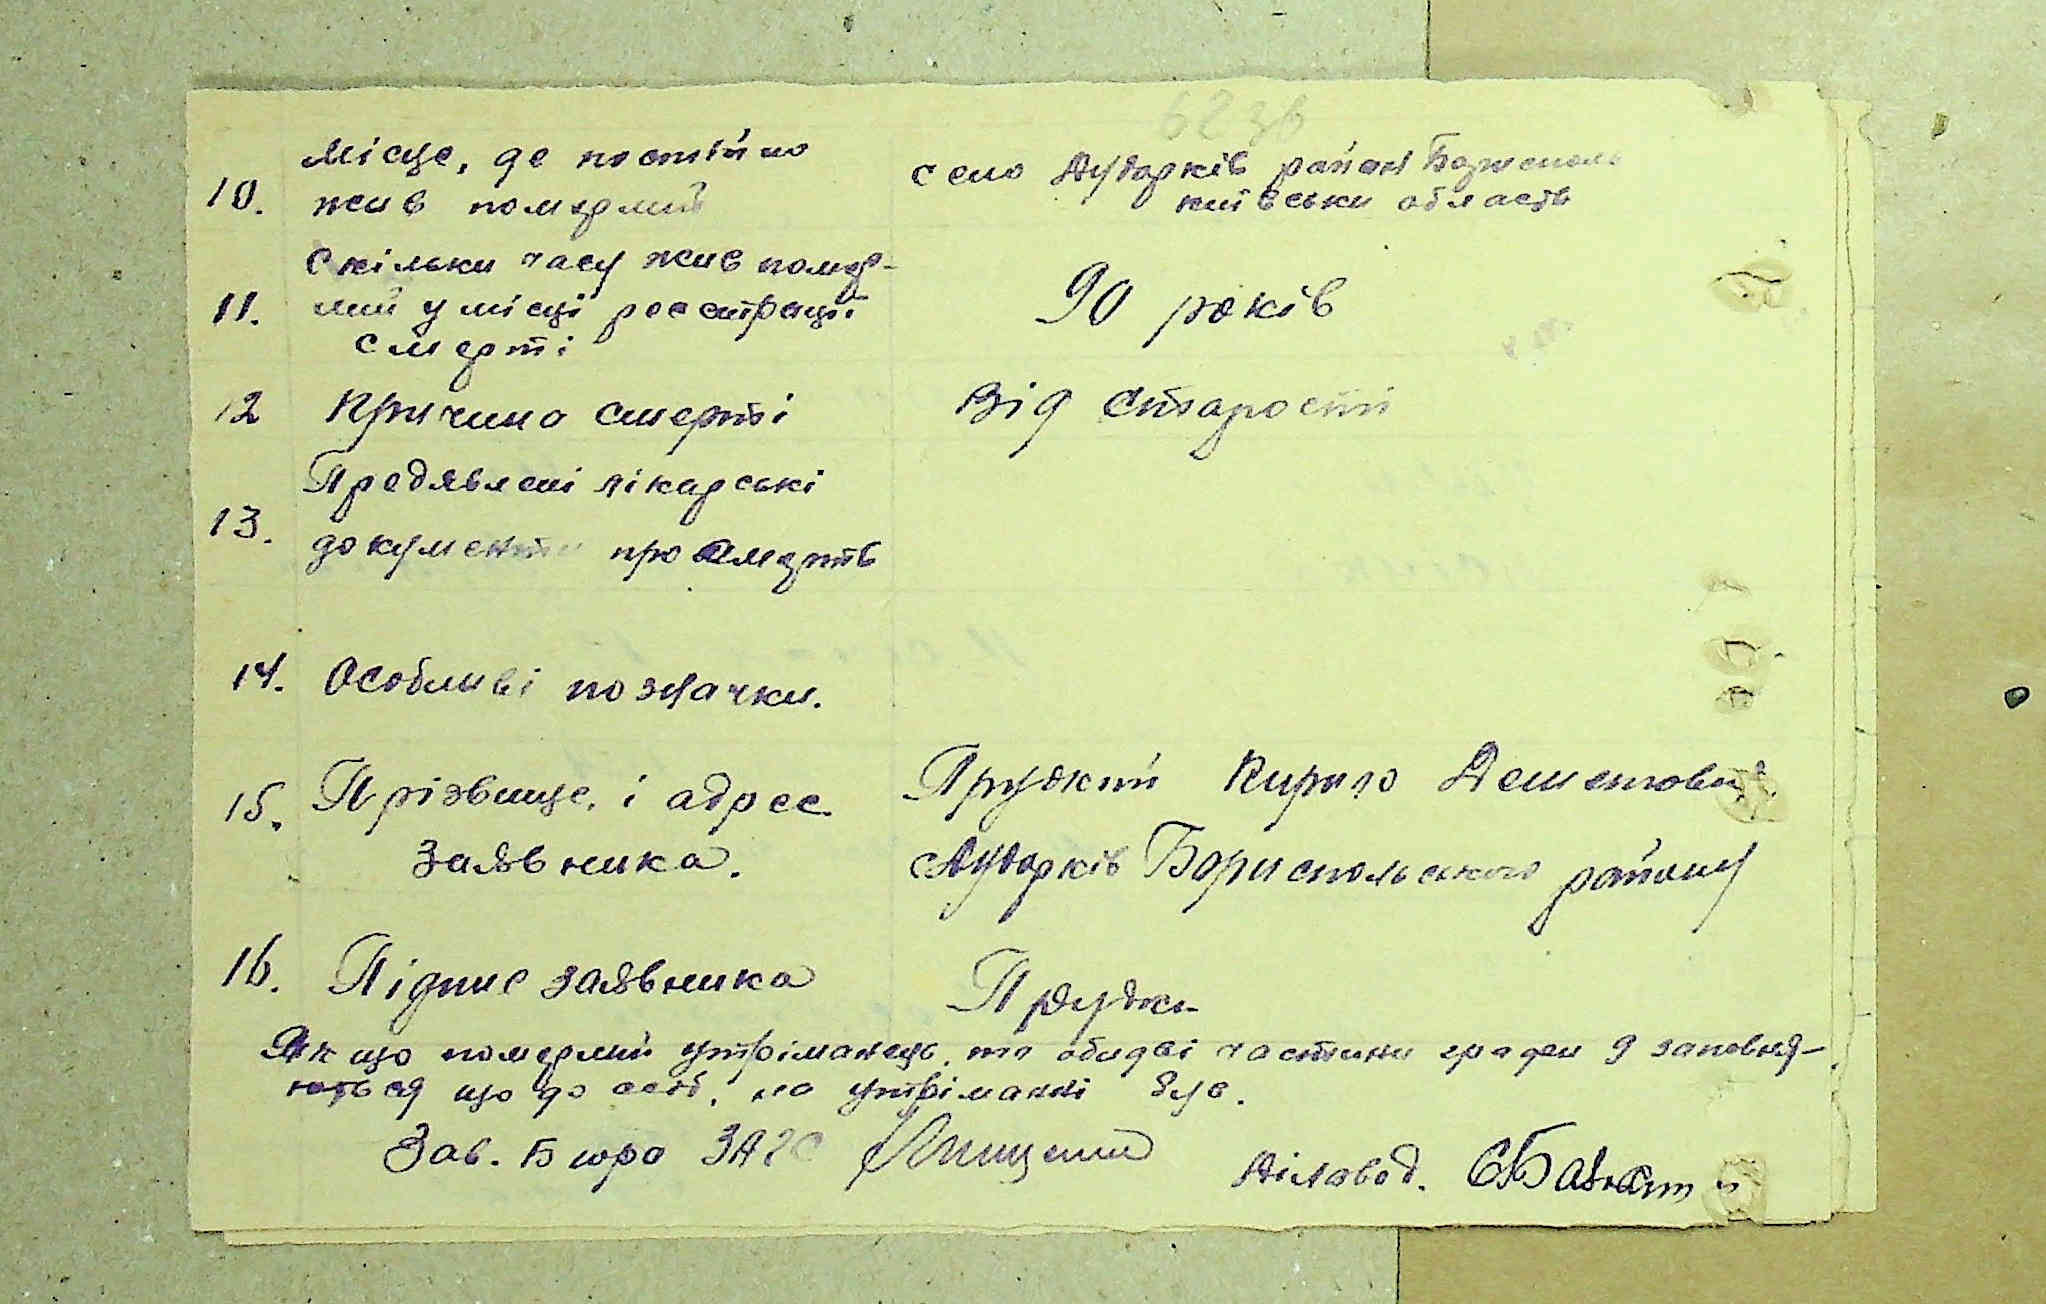 62 зв
Місце, де постійно
10. жив померлий
село Дударків район Бориспол
київськи область
Скільки часу жив помер-
11. лий у місці реєстрації
смерті
90 років
12 Причина смерті
Від старости
Предявлені лікарські
13. документи про смерть
14. Особливі позначки.
15. Прізвище, і адрес.
заявника.
Прудкий Кирило
с Дударків Бориспольського району
16. Підпис заявника
Прудки
Як що померлий утріманець, то обидві частини графи 9 заповня-
ються що до осіб, на утріманні був.
Зав. Бюро ЗАГС
Діловод.